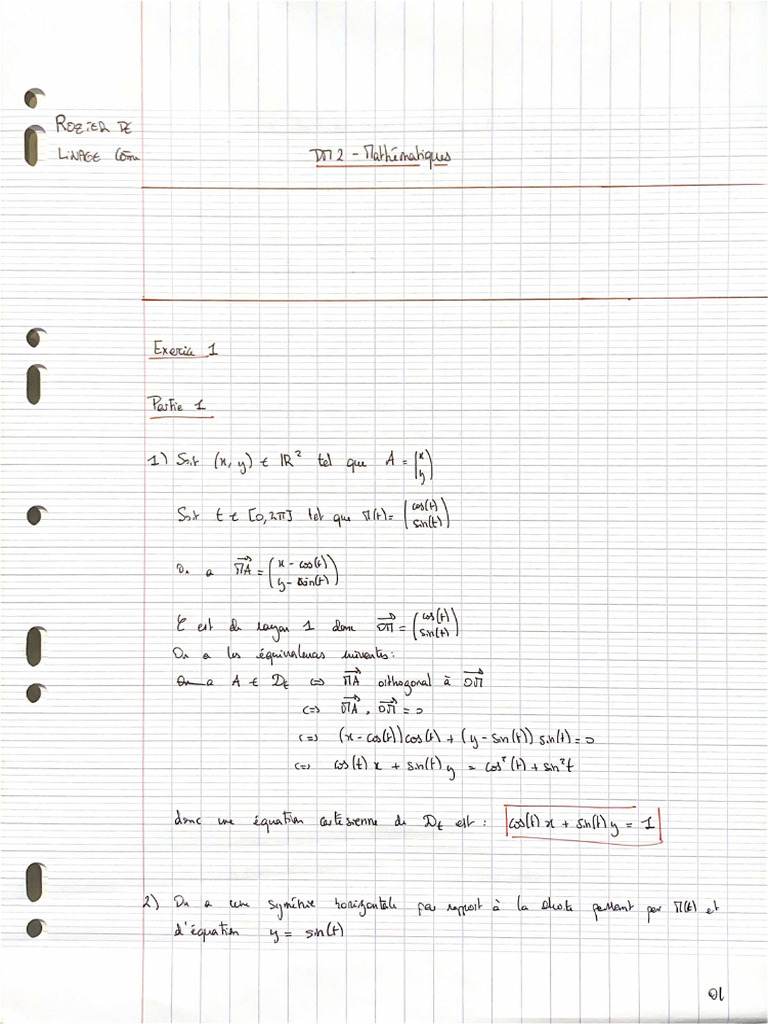 ROZIER DE
LINAGE Côme
DM 2 - Mathématiques
Exercice 1
Partie 1
1) Soit (x, y) ∈ ℝ² tel que A = (x y)
Soit t ∈ [0, 2π] tel que M(t) = (cos(t) sin(t))
On a MA⃗ = (x - cos(t) y - sin(t))
C est de rayon 1 donc OM⃗ = (cos(t) sin(t))
On a les équivalences suivantes :
On a A ∈ Dt ⇔ MA⃗ orthogonal à OM⃗
⇔ MA⃗ . OM⃗ = 0
⇔ (x - cos(t)) cos(t) + (y - sin(t)) sin(t) = 0
⇔ cos(t) x + sin(t) y = cos²(t) + sin²t
donc une équation cartésienne de Dt est : cos(t) x + sin(t) y = 1
2) On a une symétrie horizontale par rapport à la droite passant par M(t) et
d'équation y = sin(t)
01